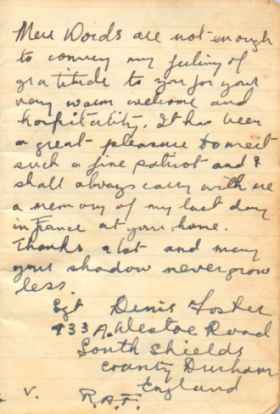 Mere Words are not enough
to convey my feeling of
gratitude to you for your
very warm welcome and
hospitality. It has been
a great pleasure to meet
such a fine patriot and I
shall always carry with me
a memory of my last day
in France at your home.
Thanks a lot and may
your shadow never grow
less.
Sgt Denis Foster
133 A. Westoe Road
South Shields
County Durham
England
V. R.A.F.